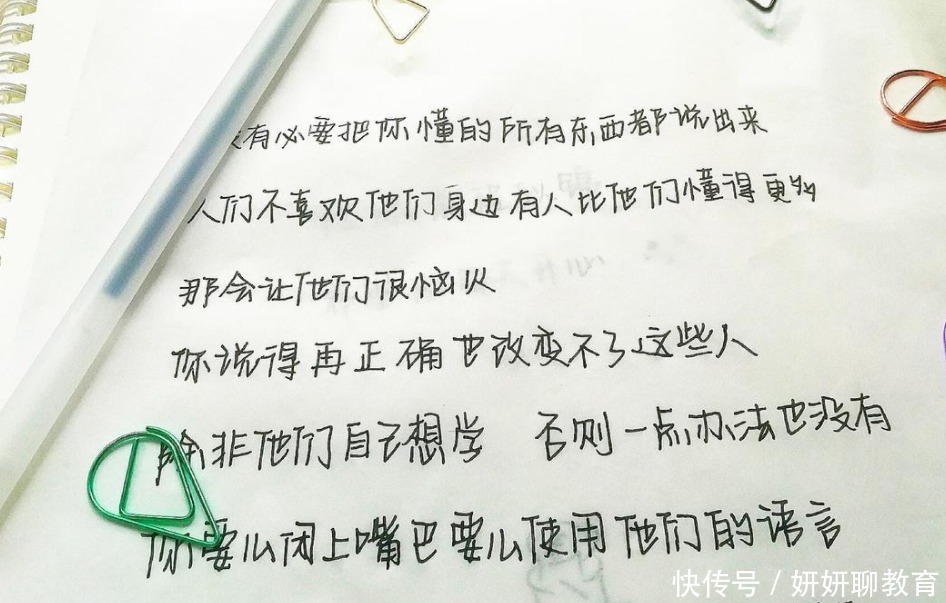 没有必要把你懂的所有东西都说出来
人们不喜欢他们身边有人比他们懂得更多
那会让他们很恼火
你说得再正确也改变不了这些人
除非他们自己想学 否则一点办法也没有
你要么闭上嘴巴要么使用他们的语言
快传号 / 妍妍聊教育